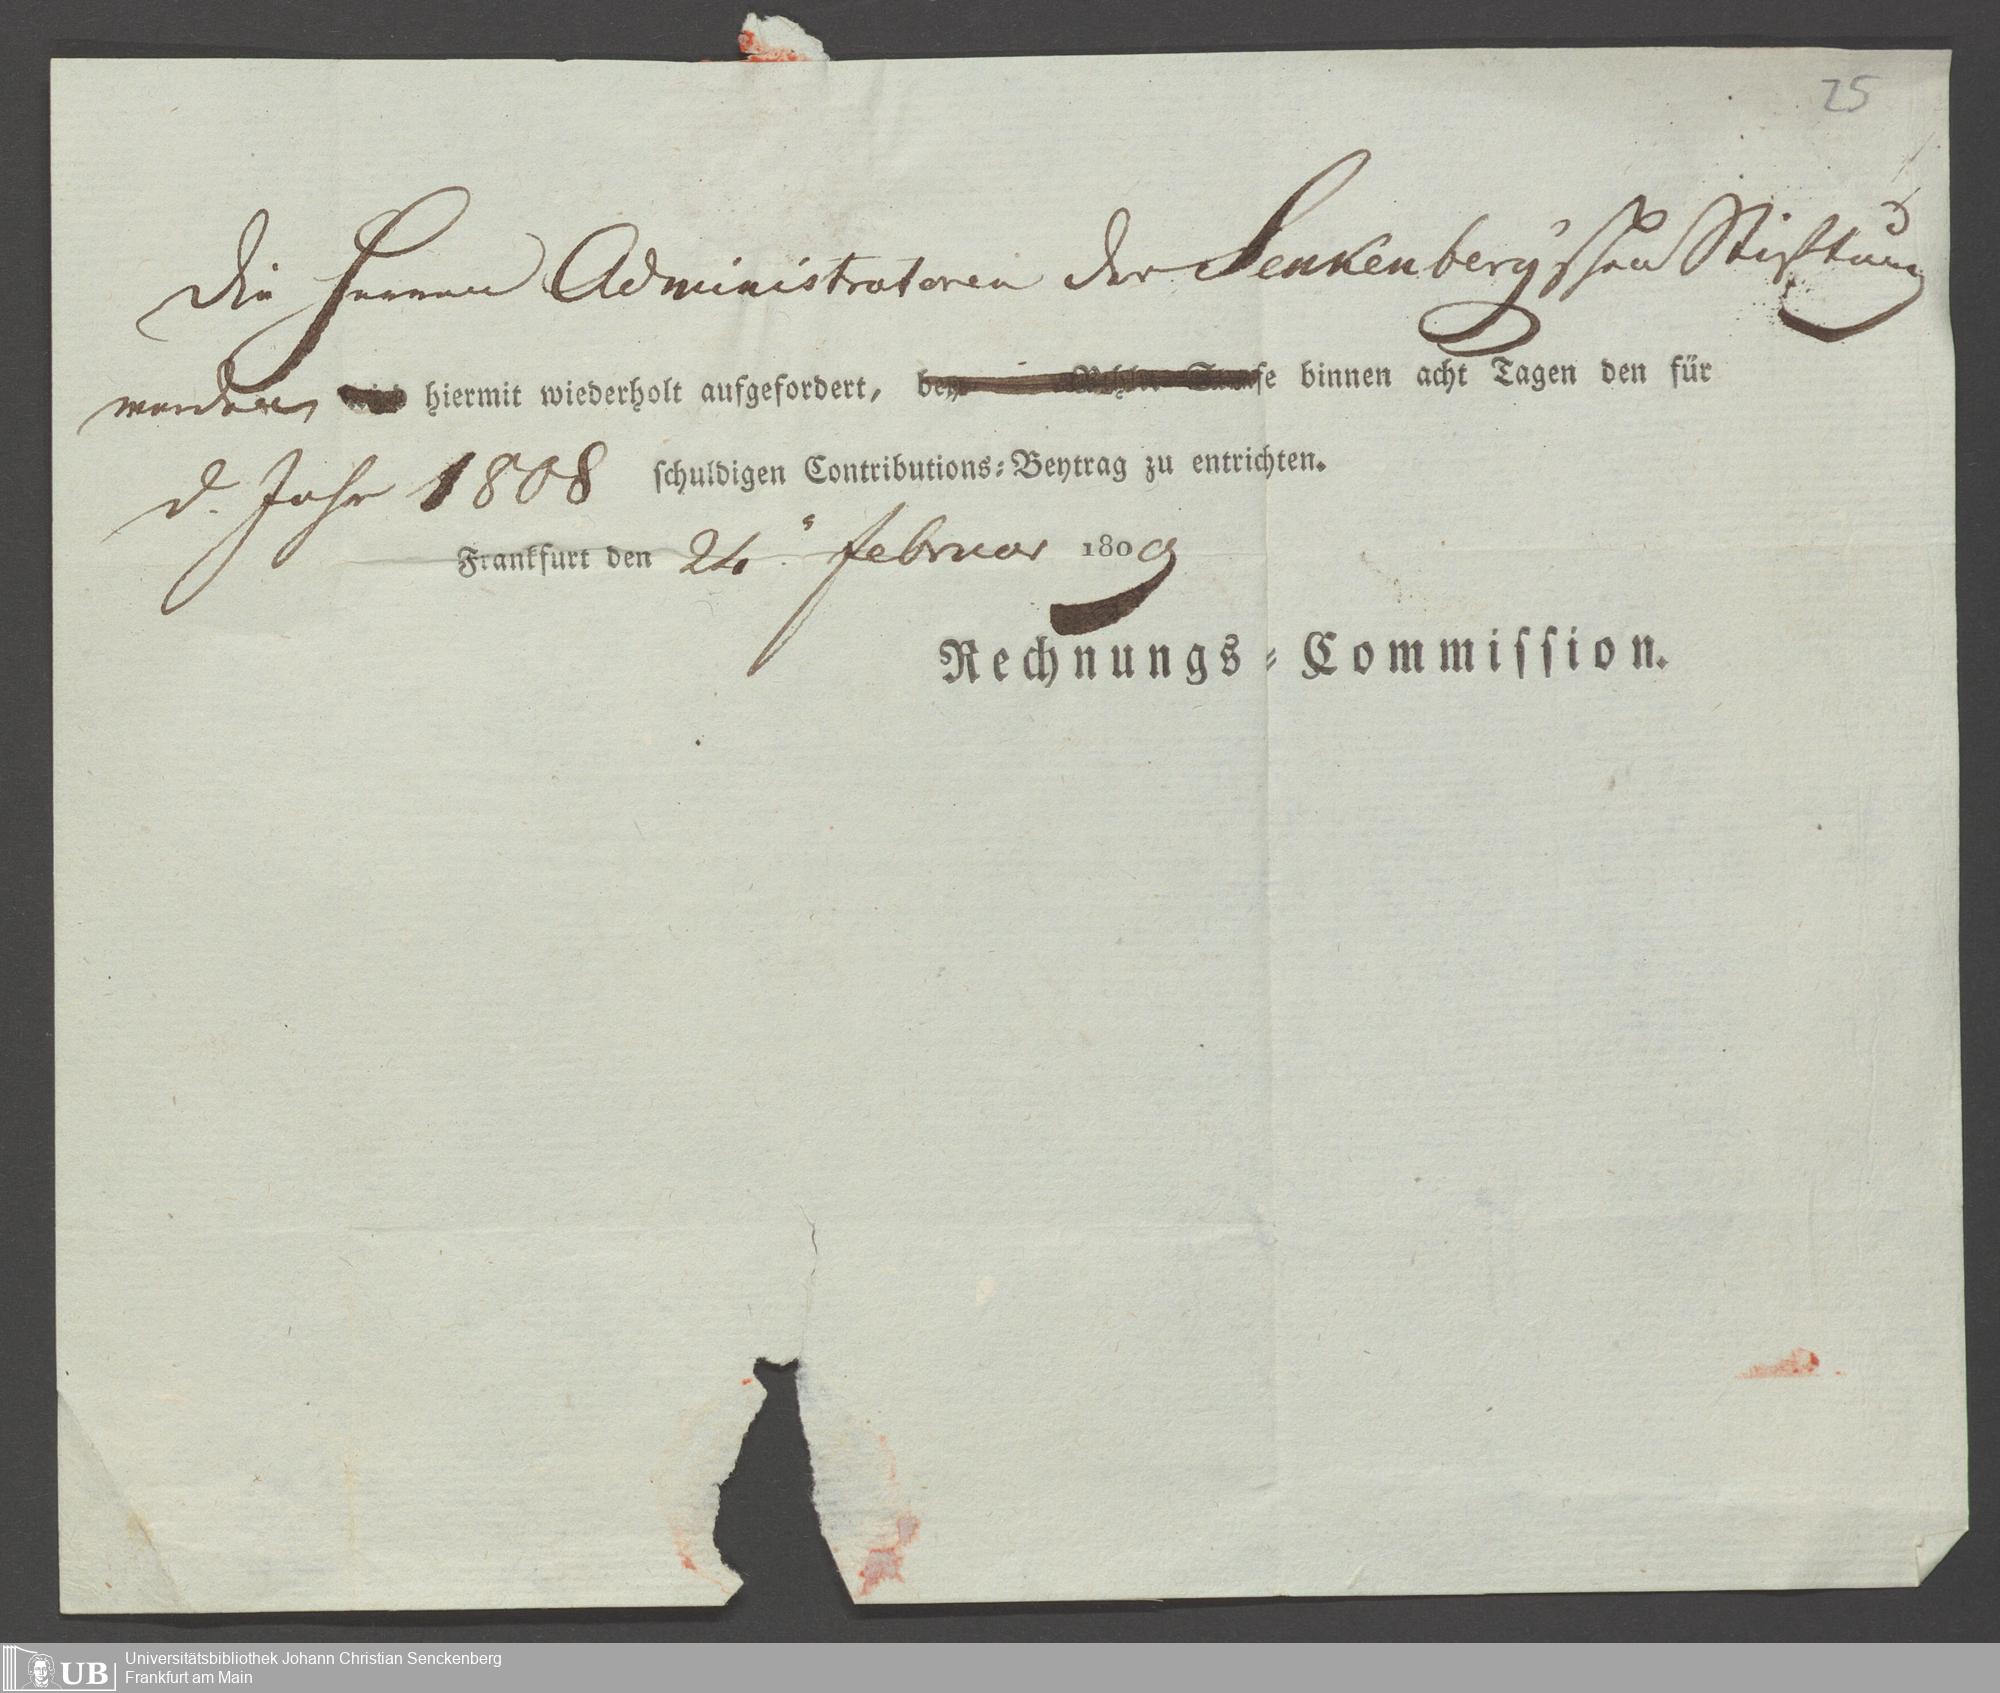 25
Die Herren Administratoren der Senkenberg'schen Stiftung
werden wird hiermit wiederholt aufgefordert, binnen acht Tagen den für
d. Jahr 1808 schuldigen Contributions-Beytrag zu entrichten.
Frankfurt den 24. Februar 1809
Rechnungs-Commission.
UB
Universitätsbibliothek Johann Christian Senckenberg
Frankfurt am Main